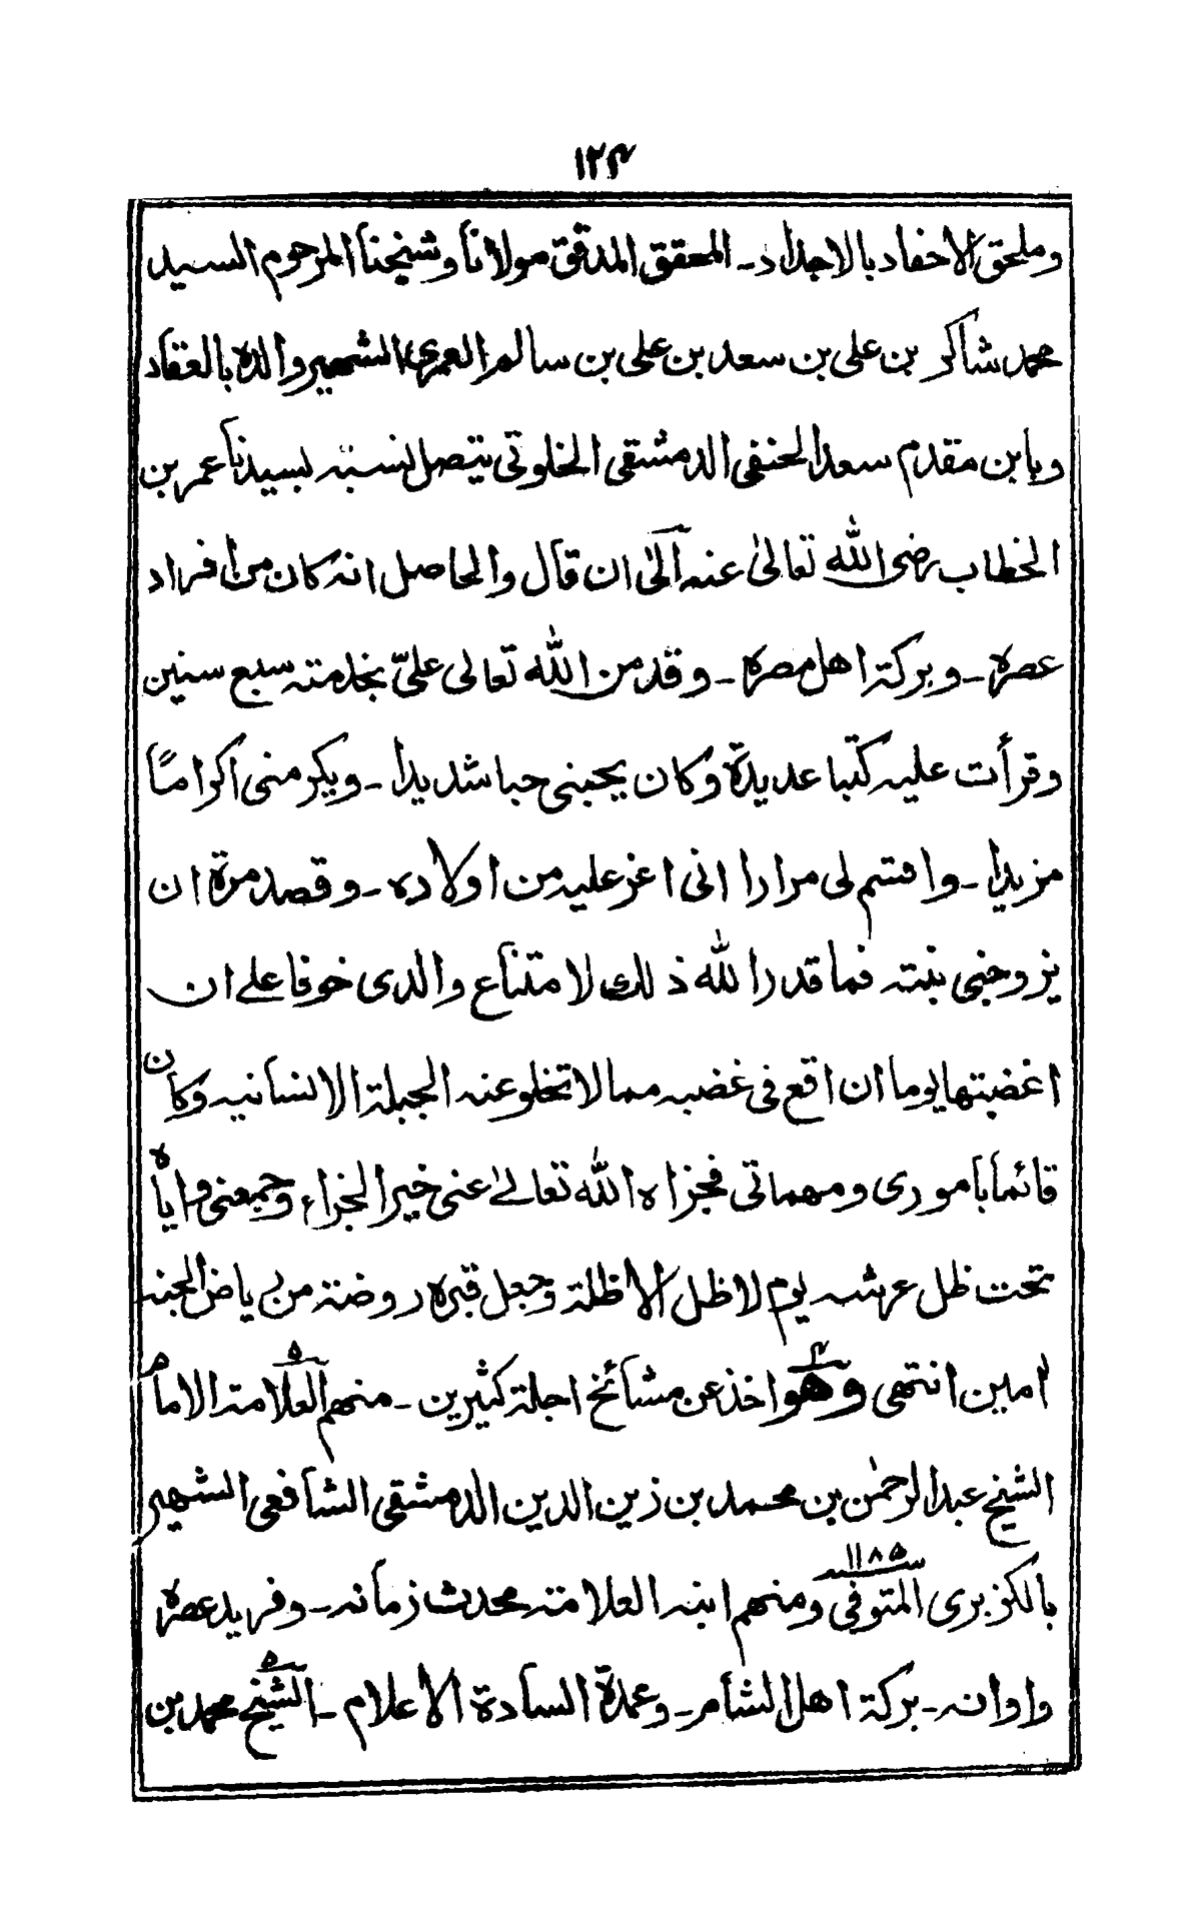 ۱۲۴
وملحق الاحفاد بالاجداد۔ المحقق المدقق مولانا وشیخنا المرحوم السید
محمد شاکر بن علی بن سعد بن علی بن سالم العمری الشھیر والدہ بالعقاد
وبابن مقدم سعد الحنفی الدمشقی الخلوتی یتصل نسبہ بسیدنا عمر بن
الخطاب رضی اللہ تعالیٰ عنہ آلیٰ ان قال والحاصل انہ کان من افراد
عصرہ۔ وبرکۃ اھل مصرہ۔ وقد من اللہ تعالی علیّ بخدمتہ سبع سنین
وقرأت علیہ کتبا عدیدۃ وکان یحبنی حبا شدیدا۔ ویکرمنی اکراماً
مزیدا۔ واقسم لی مرارا انی اعز علیہ من اولادہ۔ وقصد مرۃ ان
یزوجنی بنتہ فما قدر اللہ ذلک لامتناع والدی خوفا علے ان
اغضبتھا یوما ان اقع فی غضبہ مما لا تخلو عنہ الجبلۃ الانسانیہ وکان
قائما بأموری ومھماتی فجزاہ اللہ تعالےٰ عنی خیر الجزاء وجمعنی وایاہ
تحت ظل عرشہ یوم لا ظل الا ظلہ وجعل قبرہ روضۃ من ریاض الجنہ
اٰمین انتھی وھو اخذ عن مشائخ اجلۃ کثیرین۔ منھم العلامۃ الامام
الشیخ عبد الرحمٰن بن محمد بن زین الدین الدمشقی الشافعی الشھیر
بالکزبری المتوفی ۱۱۸۵ ومنھم ابنہ العلامۃ محدث زمانہ۔ وفرید عصرہ
واوانہ۔ برکۃ اھل الشأم۔ وعمدۃ السادۃ الاعلام۔ الشیخ محمد بن